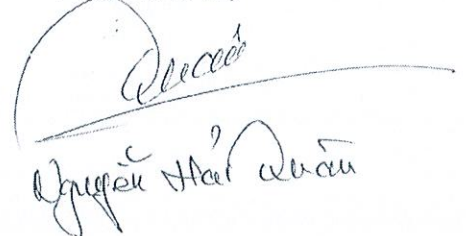 Quân
Nguyễn Hải Quân